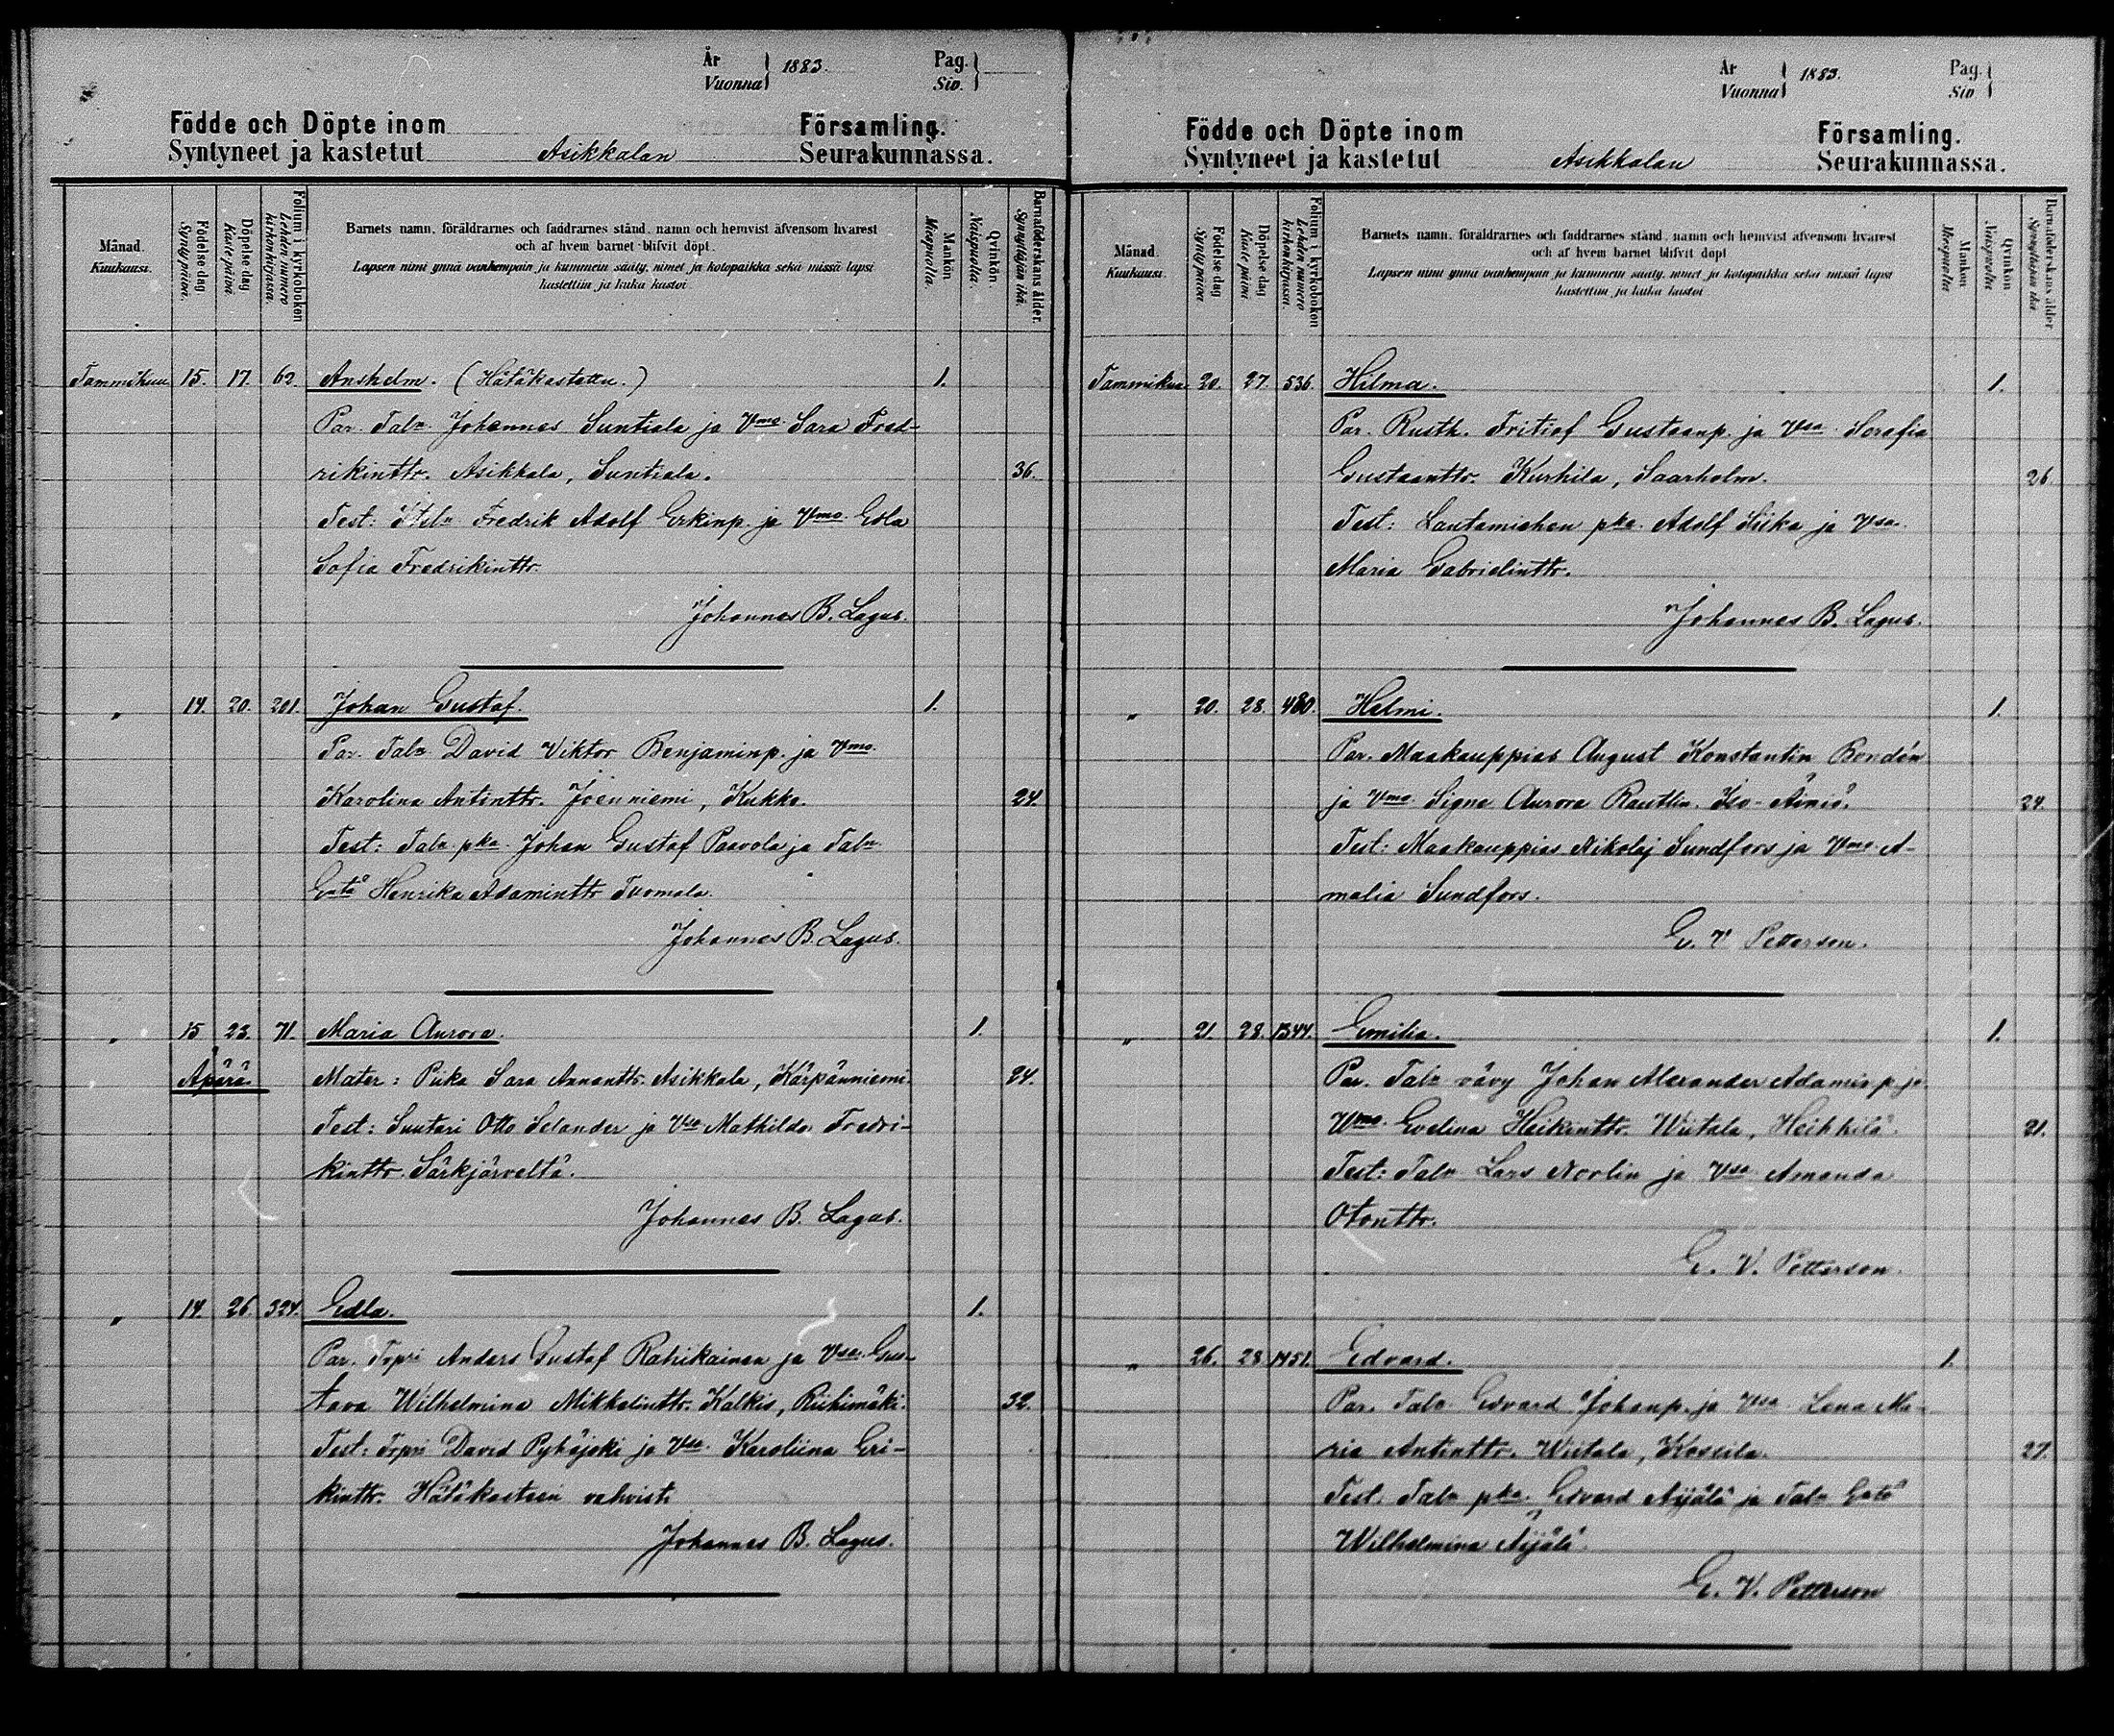 År
Vuonna
1883.
Pag.
Siv.
Födde och Döpte inom Församling.
Syntyneet ja kastetut Asikkalan Seurakunnassa.
Månad.
Kuukausi.
Födelse dag
Synty päivä.
Döpelse dag
Kaste päivä.
Folium i kyrkoboken
Lehden numero
kirkonkirjassa.
Barnets namn, föräldrarnes och faddrarnes stånd, namn och hemvist äfvensom hvarest
och af hvem barnet blifvit döpt.
Lapsen nimi ynnä vanhempain ja kummein sääty, nimet ja kotopaikka sekä missä lapsi
kastettiin ja kuka kastoi
Mankön
Miespuolia.
Qvinkön.
Vaispuolia.
Barnaföderskans ålder.
Synnyttäjän ikä.
Tammikuu 15. 17. 62 Anshelm. (Hätäkastettu.) 1.
Par. Taln Johannes Suntiala ja Vmo Sara Fred-
rikinttr. Asikkala, Suntiala. 36.
Test: Fredrik Adolf Erkinp. ja Vmo Edla
Sofia Fredrikinttr.
Johannes B. Lagus.
" 14. 20. 201. Johan Gustaf. 1.
Par. Taln David Viktor Benjaminp. ja Vmo
Karolina Antinttr. Joenniemi, Kukko. 24.
Test: Taln pka Johan Gustaf Paavola ja Taln
Entä Henrika Adaminttr Tuomala.
Johannes B. Lagus.
" 15 23. 71. Maria Aurora. 1.
Äpärä. Mater: Piika Sara Annanttr. Asikkala, Kärpänniemi. 24.
Test: Suutari Otto Selander ja Vsa Mathilda Fredri-
kinttr. Särkjärveltä.
Johannes B. Lagus.
" 14. 26. 324. Edla. 1.
Par. Torpri Anders Gustaf Rahikainen ja Vsa Gus-
tava Wilhelmina Mikkelinttr. Kalkis, Riihimäki. 32.
Test: Torpri David Pyhäjoki ja Vsa Karoliina Eri-
kinttr. Hätäkasteen vahvisti
Johannes B. Lagus.
År
Vuonna
1883.
Pag.
Siv
Födde och Döpte inom Församling.
Syntyneet ja kastetut Asikkalan Seurakunnassa.
Månad.
Kuukausi.
Födelse dag
Synty päivä.
Döpelse dag
Kaste päivä
Folium i kyrkoboken
Lehden numero
kirkonkirjassa.
Barnets namn, föräldrarnes och faddrarnes stånd, namn och hemvist äfvensom hvarest
och af hvem barnet blifvit döpt
Lapsen nimi ynnä vanhempain ja kummein sääty, nimet ja kotopaikka sekä missä lapsi
kastettiin ja kuka kastoi
Mankön
Miespuolia
Qvinkön
Naispuolia
Barnaföderskans ålder
Synnyttäjän ikä
Tammikuu 20. 27. 536. Hilma. 1.
Par. Rusth. Fritiof Gustaanp. ja Vsa Serafia
Gustaanttr. Kurhila, Saarholm. 26
Test: Lautamiehen pka Adolf Siika ja Vsa
Maria Gabrielinttr.
Johannes B. Lagus.
" 20. 28. 480. Helmi. 1.
Par. Maakauppias August Konstantin Bondén
ja Vmo Signe Aurora Rautlin. Iso-Äiniö. 24.
Test: Maakauppias Nikolaj Sundfors ja Vmo A-
malia Sundfors.
G. V. Petterson.
" 21. 28. 1344. Emilia. 1.
Par. Taln vävy Johan Alexander Adamin p. ja
Vmo Evelina Heikinttr. Wiitala, Heikkilä. 21.
Test: Taln Lars Norlin ja Vsa Amanda
Otonttr.
G. V. Petterson.
" 26. 28 1451. Edvard. 1.
Par. Taln Edvard Johanp. ja Vsa Lena Ma-
ria Antinttr. Wiitala, Kossila. 27.
Test. Taln pka Edvard Äijälä ja Taln Entä
Wilhelmina Äijälä.
G. V. Petterson